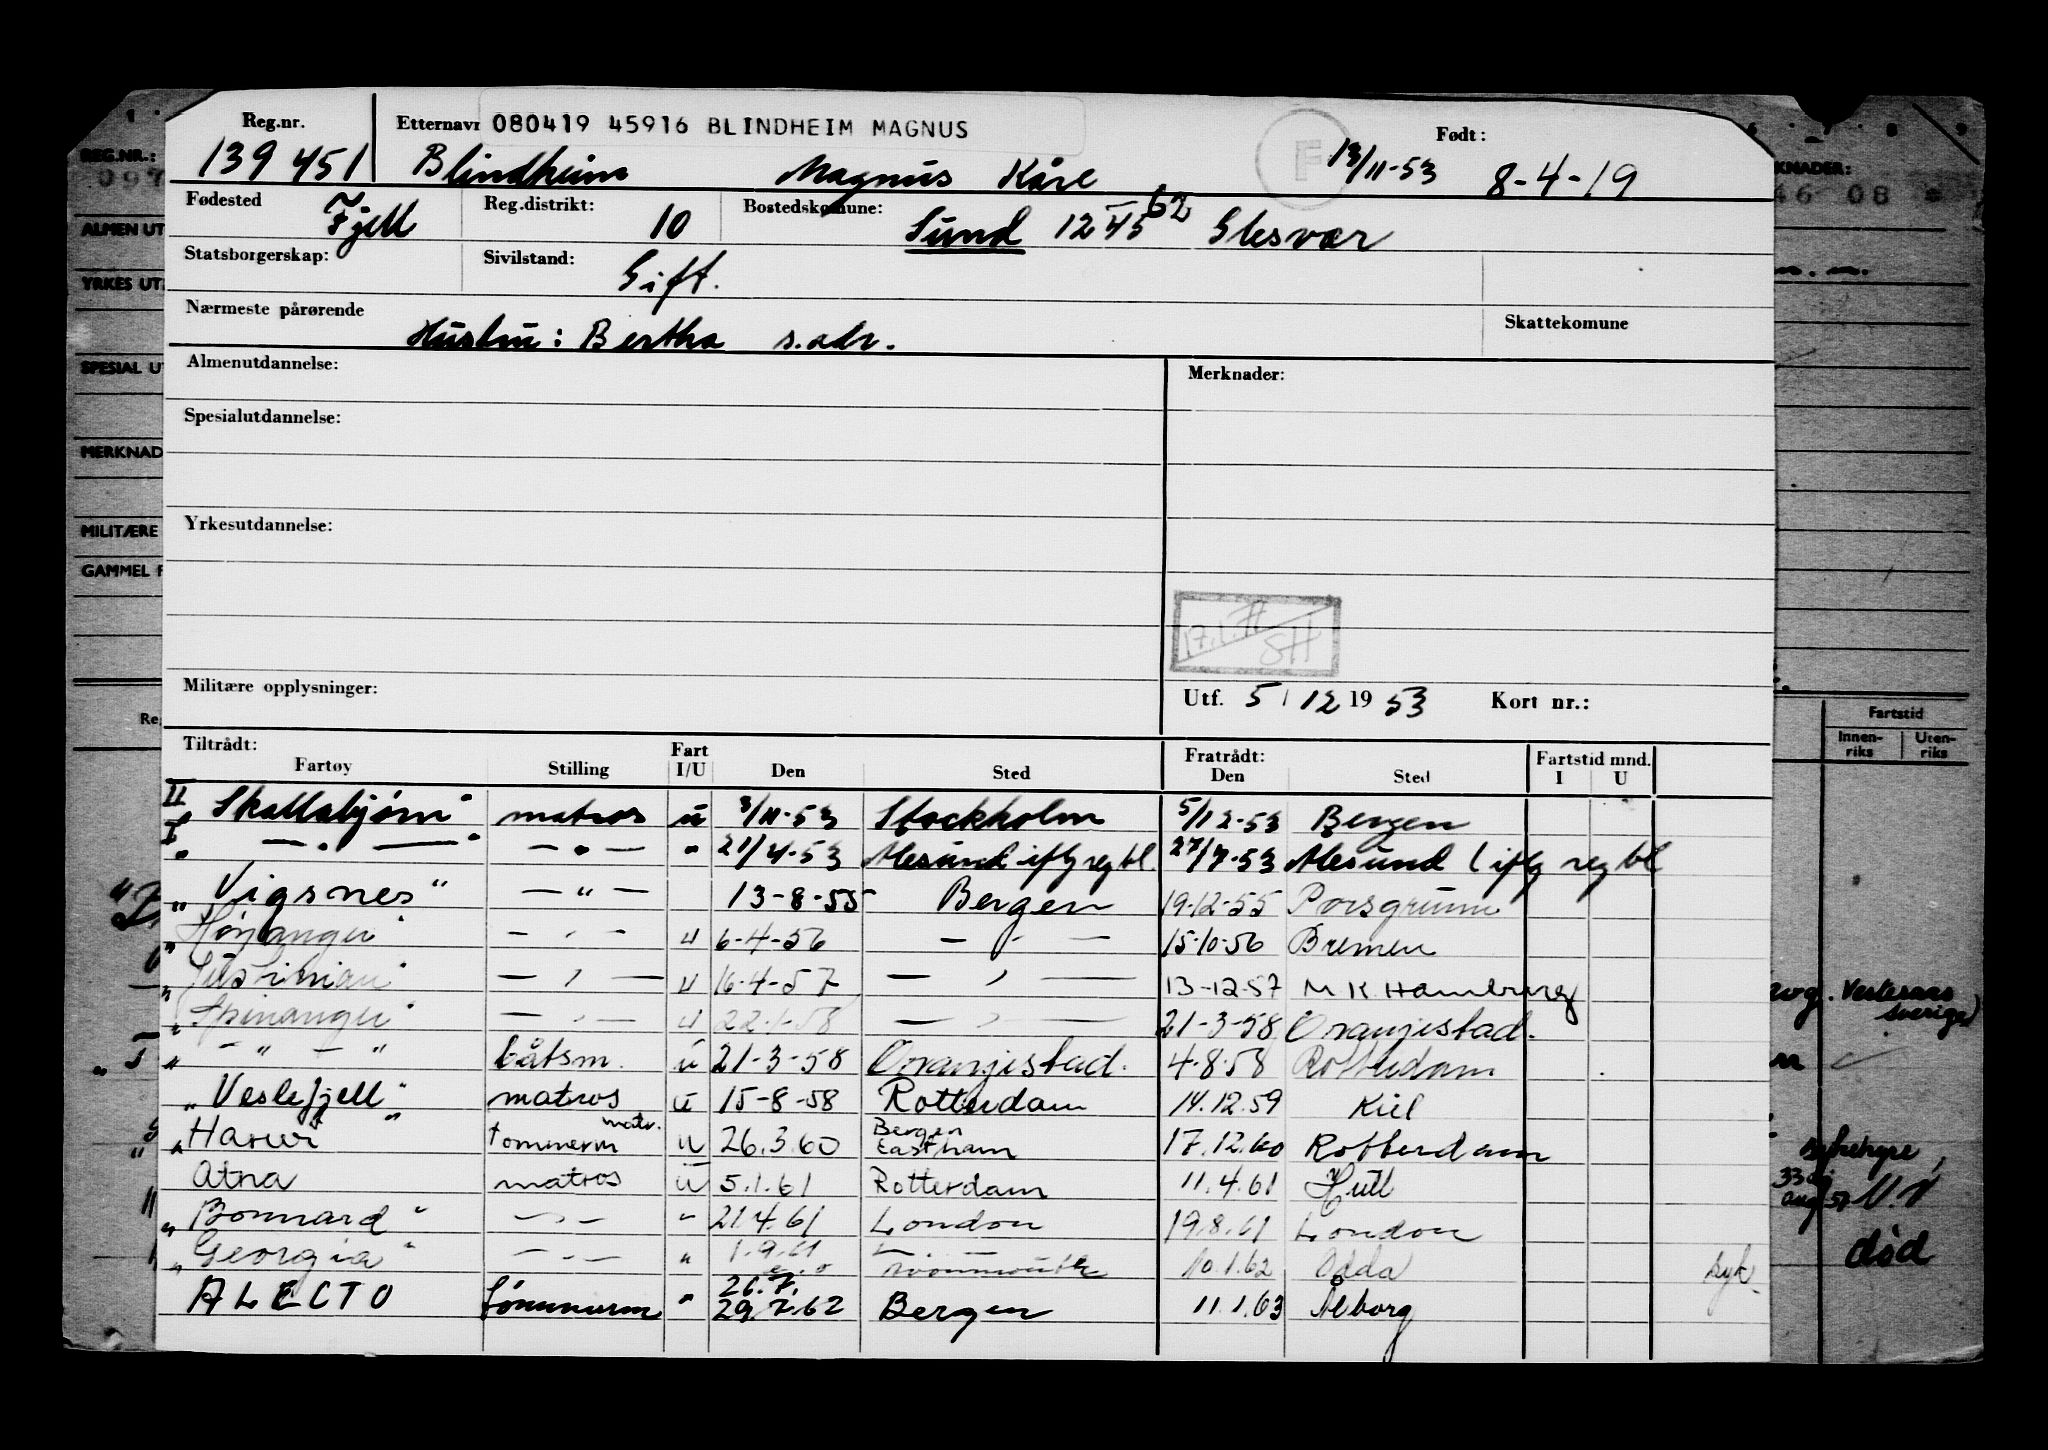 Reg.nr. Etternavn 080419 45916 BLINDHEIM MAGNUS F Født:
139 451 Blindheim Magnus Kåre 13/11-53 8-4-19
Fødested Fjell Reg.distrikt: 10 Bostedskomune: Sund 1245 62 Glesvær
Statsborgerskap: Sivilstand: Gift.
Nærmeste pårørende Hustru: Bertha s.adr. Skattekomune
Almenutdannelse: Merknader:
Spesialutdannelse:
Yrkesutdannelse:
17.1.71 SH
Militære opplysninger: Utf. 5/12 1953 Kort nr.:
Tiltrådt: Fart Fratrådt: Fartstid mnd.
Fartøy Stilling I/U Den Sted Den Sted I U
II "Skallabjørn" matros u 3/11-53 Stockholm 5/12-53 Bergen
I " — " — — " — " 21/4-53 Ålesund iflg reg bl. 27/7-53 Ålesund (iflg reg bl
"Vigsnes" — " — 13-8-55 Bergen 19-12-55 Porsgrunn
"Høyanger" — " — u 6-4-56 — " — 15-10-56 Bremen
— " — u 16-4-57 — " — 13-12-57 M K Hamburg
"Spinanger" — " — u 22-1-58 — " — 21-3-58 Oranjestad.
— " — " båtsm. u 21-3-58 Oranjestad. 4-8-58 Rotterdam
"Veslefjell" matros u 15-8-58 Rotterdam 14.12.59 Kiel
matr. Bergen
tømmerm u 26.3.60 Eastham 17.12.60 Rotterdam
Atna matros u 5.1.61 Rotterdam 11.4.61 Hull
"Bonnard" — " — " 21.4.61 London 19.8.61 London
"Georgia" — " — " 1.9.61 10.1.62 Odda syk
26.7.
ALECTO tømmerm " 29.7.62 Bergen 11.1.63 Ålborg
REG.NR.:
097
ALMEN UT
YRKES UT
SPESIAL UT
MERKNAD
MILITÆRE
GAMMEL F
KNADER:
46 08
Fartstid
Innen-riks Uten-riks
Sverige)
død